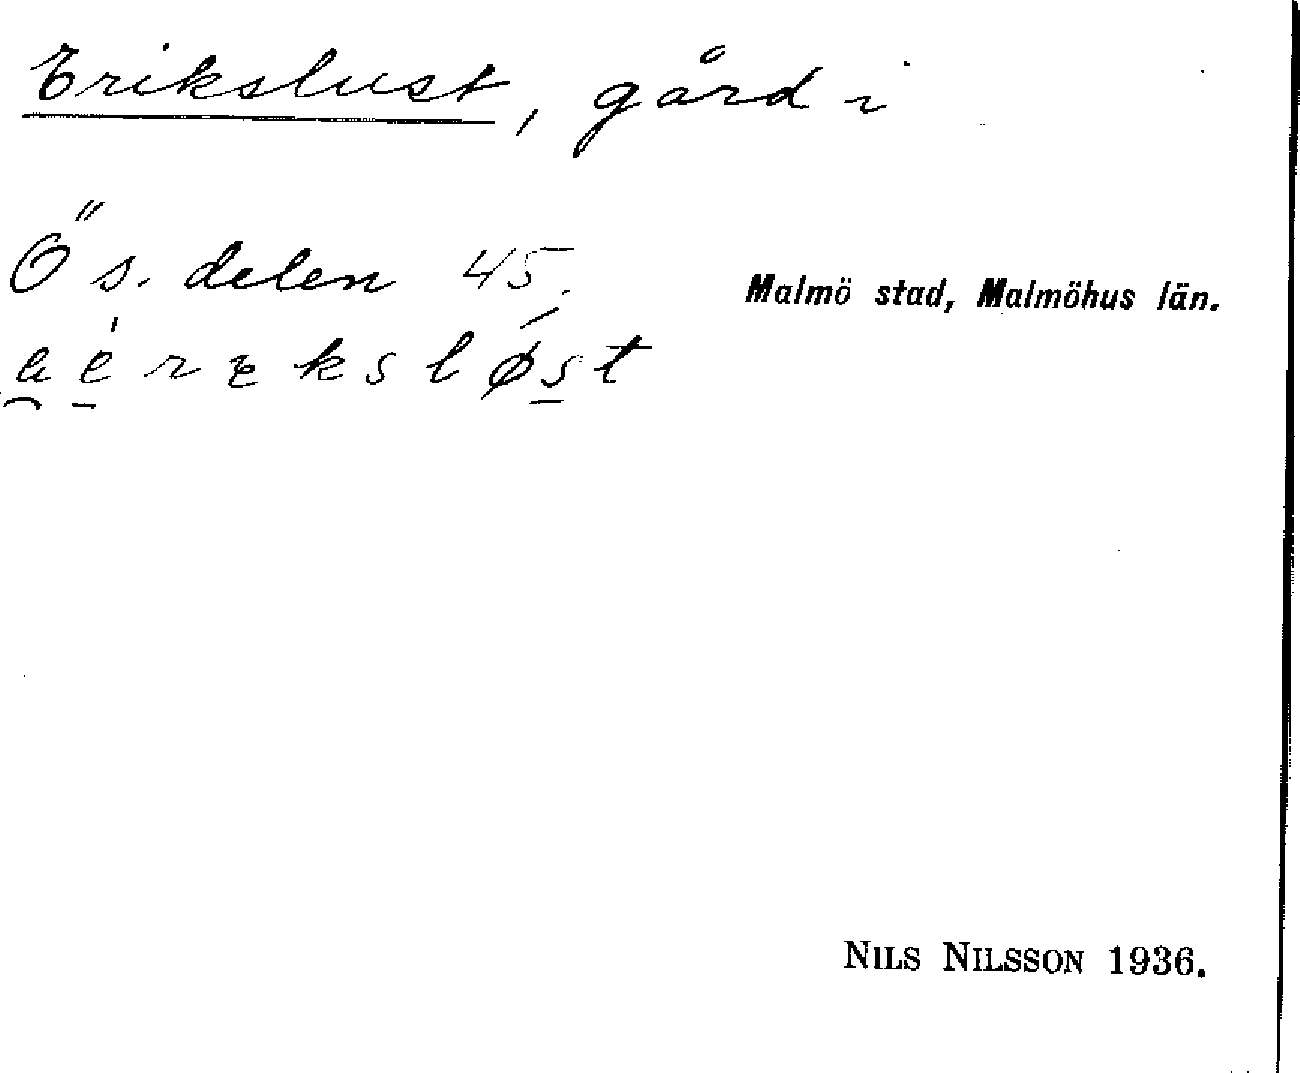 Erikslust, gård i
Ö s. delen 45.
Malmö stad, Malmöhus län.
NILS NILSSON 1936.